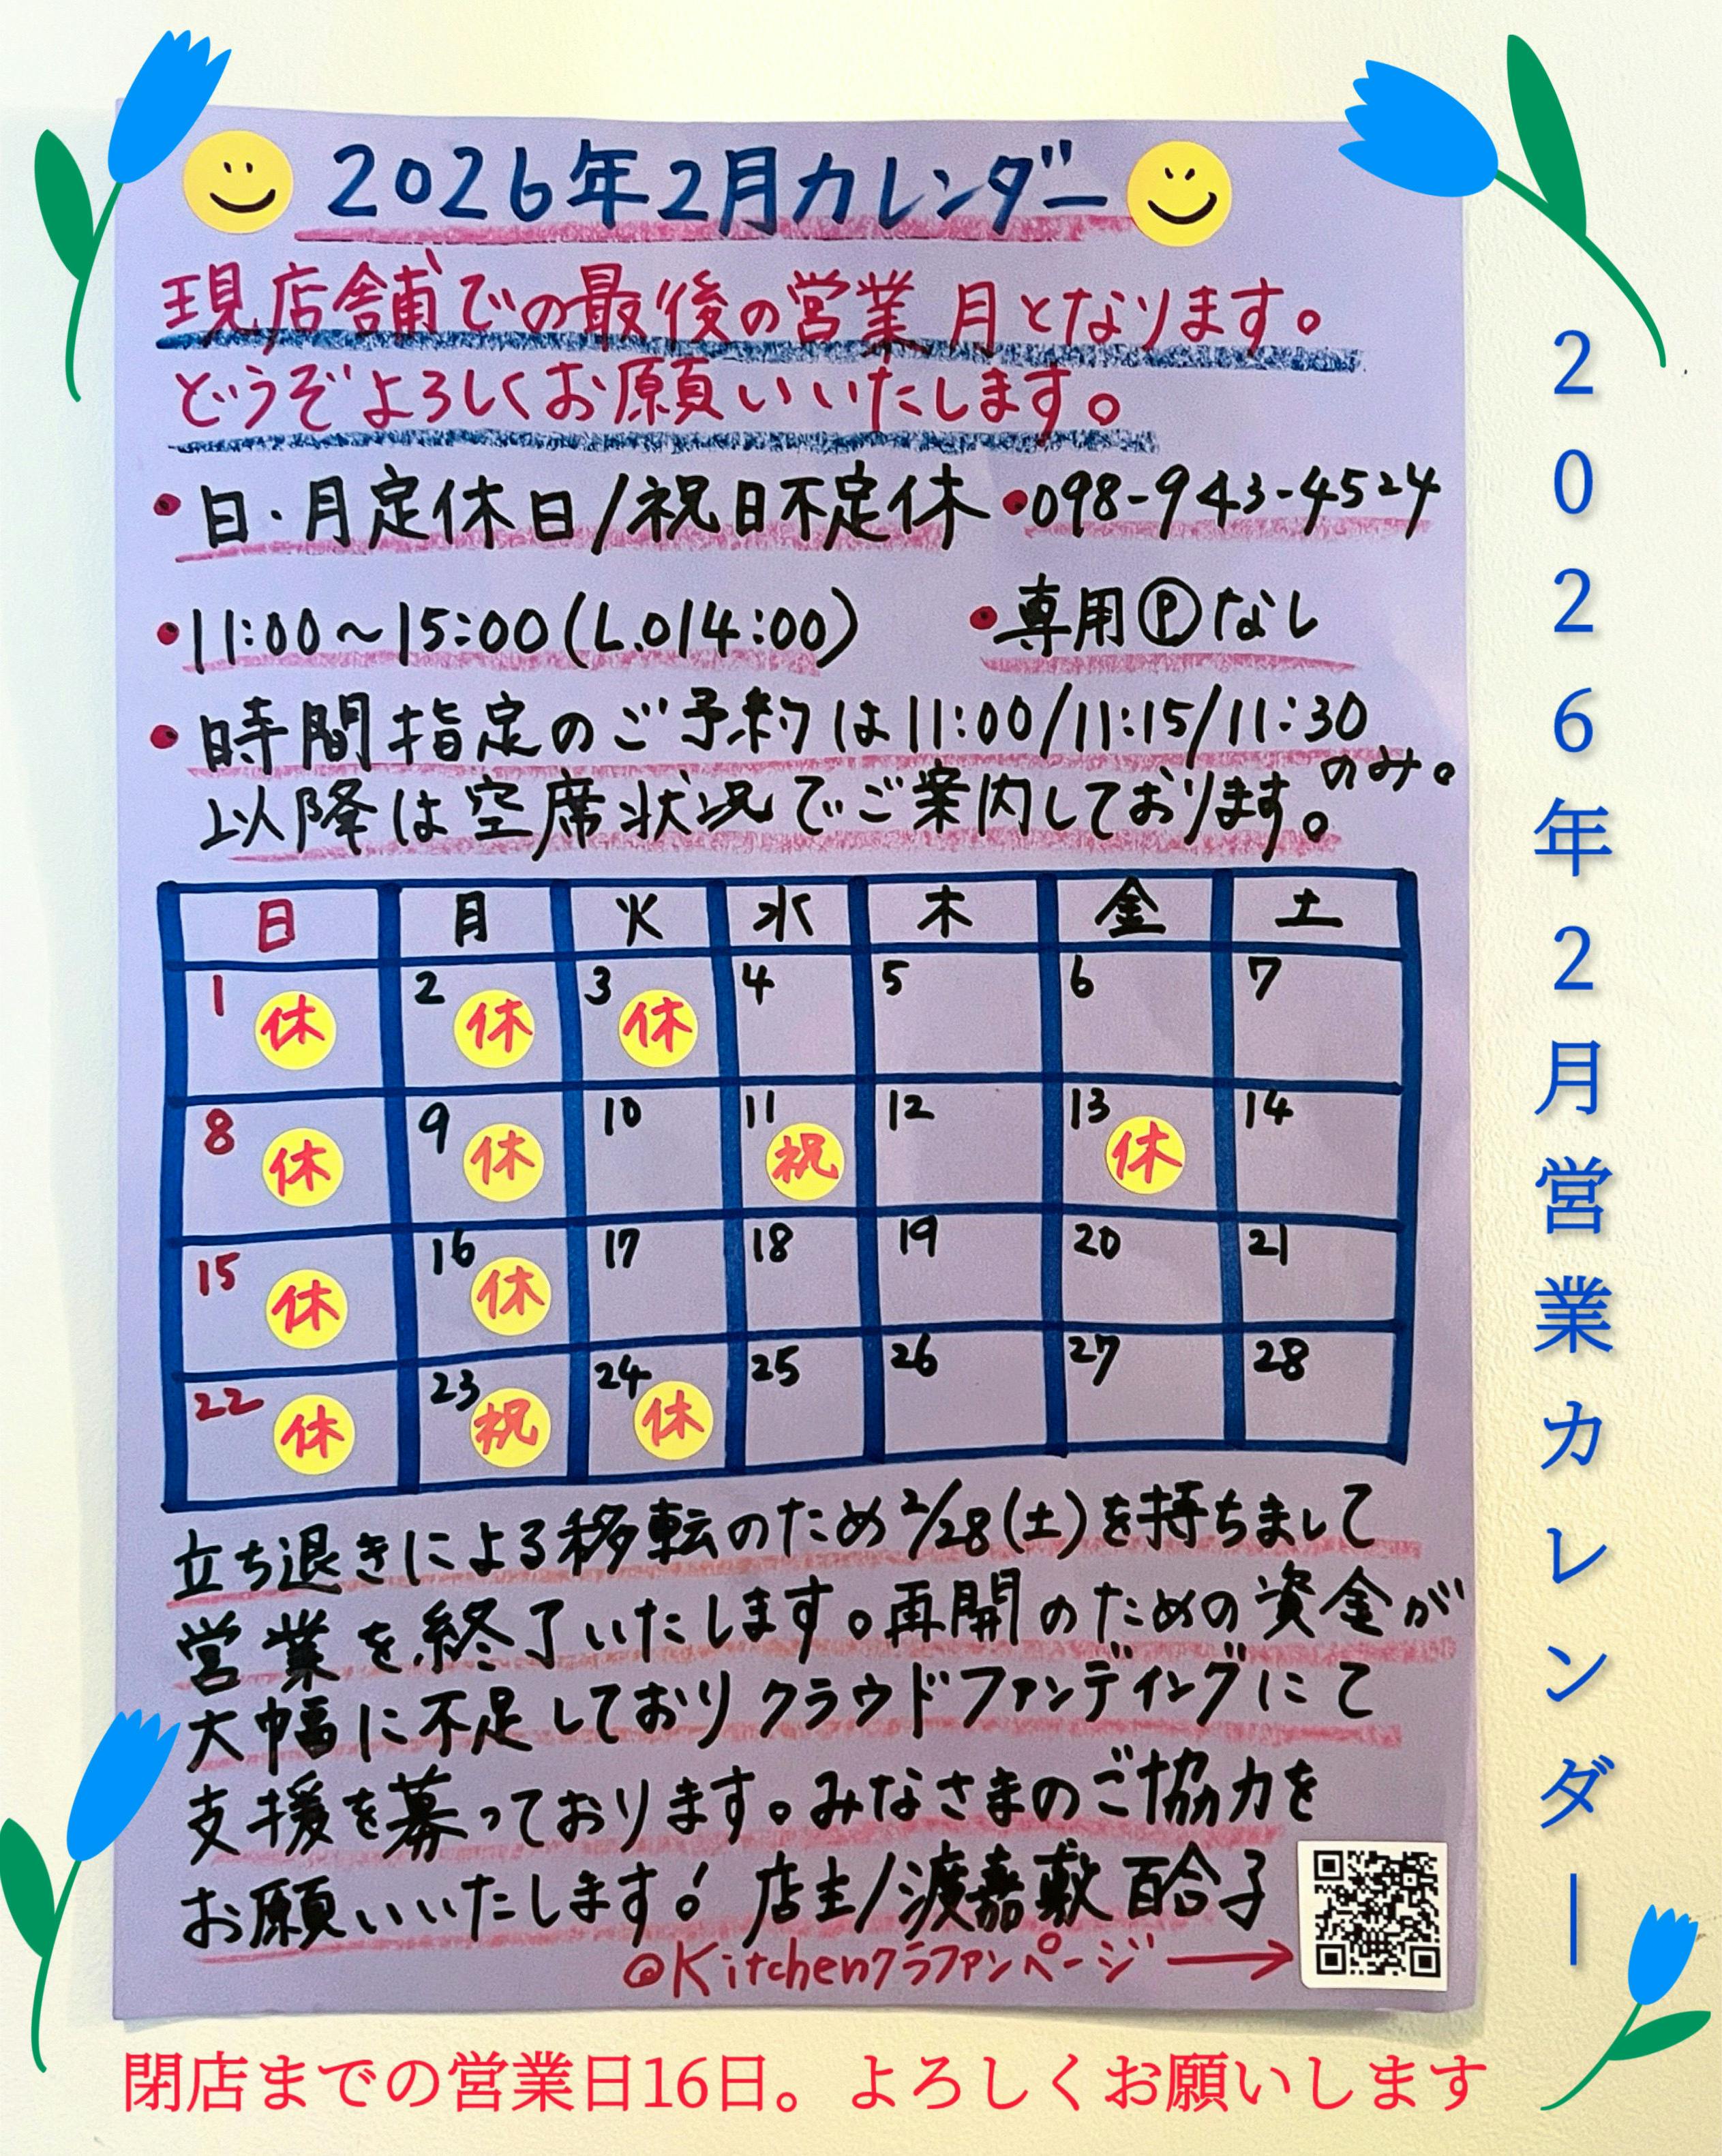 2026年2月カレンダー
現店舗での最後の営業月となります。
どうぞよろしくお願いいたします。
・日・月定休日/祝日不定休 ・098-943-4524
・11:00~15:00(L.O14:00) ・専用Ⓟなし
・時間指定のご予約は11:00/11:15/11:30
のみ。
以降は空席状況でご案内しております。
日 月 火 水 木 金 土
1 休 2 休 3 休 4 5 6 7
8 休 9 休 10 11 祝 12 13 休 14
15 休 16 休 17 18 19 20 21
22 休 23 祝 24 休 25 26 27 28
立ち退きによる移転のため2/28(土)を持ちまして
営業を終了いたします。再開のための資金が
大幅に不足しておりクラウドファンディングにて
支援を募っております。みなさまのご協力を
お願いいたします! 店主/渡嘉敷百合子
@Kitchenクラファンページ→
2026年2月営業カレンダー
閉店までの営業日16日。よろしくお願いします